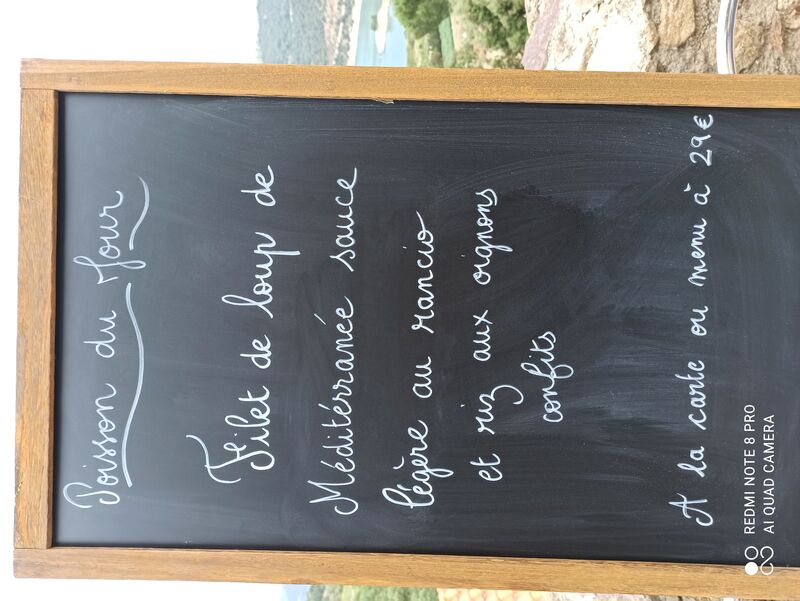 Poisson du Jour
Filet de loup de
Méditérranée sauce
légère au rancio
et riz aux oignons
confits
A la carte ou menu à 29€
REDMI NOTE 8 PRO
AI QUAD CAMERA